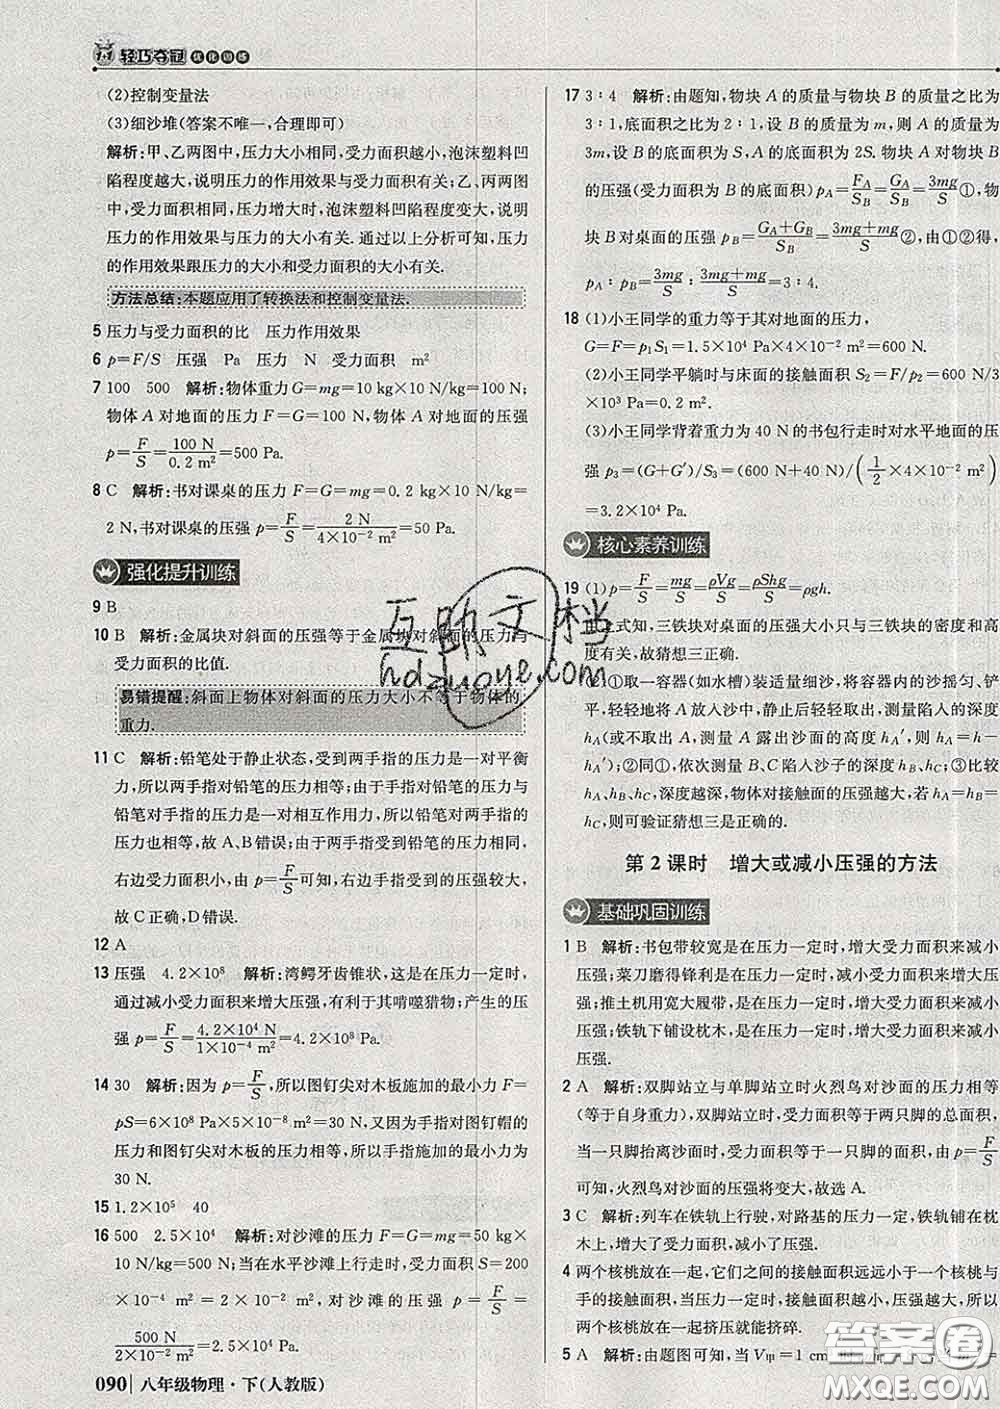 1+1 轻巧夺冠 优化训练
(2)控制变量法
(3)细沙堆(答案不唯一,合理即可)
解析:甲、乙两图中,压力大小相同,受力面积越小,泡沫塑料凹
陷程度越大,说明压力的作用效果与受力面积有关;乙、丙两图
中,受力面积相同,压力增大时,泡沫塑料凹陷程度变大,说明
压力的作用效果与压力的大小有关.通过以上分析可知,压力
的作用效果跟压力的大小和受力面积的大小有关.
方法总结:本题应用了转换法和控制变量法.
5 压力与受力面积的比 压力作用效果
6 p=F/S 压强 Pa 压力 N 受力面积 m²
7 100 500 解析:物体重力G=mg=10 kg×10 N/kg=100 N;
物体 A 对地面的压力 F=G=100 N,物体 A 对地面的压强
p=F/S=100 N/0.2 m²=500 Pa.
8 C 解析:书对课桌的压力 F=G=mg=0.2 kg×10 N/kg=
2 N,书对课桌的压强 p=F/S=2 N/4×10⁻² m²=50 Pa.
强化提升训练
9 B
10 B 解析:金属块对斜面的压强等于金属块对斜面的压力与
受力面积的比值.
易错提醒:斜面上物体对斜面的压力大小不等于物体的
重力.
11 C 解析:铅笔处于静止状态,受到两手指的压力是一对平衡
力,所以两手指对铅笔的压力相等;由于手指对铅笔的压力与
铅笔对手指的压力是一对相互作用力,所以铅笔对两手指的
压力也相等,故 A、B 错误;由于两手指受到的压力相同,
右边受力面积小,由 p=F/S 可知,右边手指受到的压强大,
故 C 正确,D 错误.
12 A
13 压强 4.2×10⁸ 解析:湾鳄牙齿锥状,这是在压力一定时,
通过减小受力面积来增大压强,有利于其啃噬猎物;产生的压
强 p=F/S=4.2×10⁴ N/1×10⁻⁴ m²=4.2×10⁸ Pa.
14 30 解析:因为 p=F/S,所以图钉尖对木板施加的最小力 F=
pS=6×10⁶ Pa×5×10⁻⁶ m²=30 N,又因为手指对图钉帽的
压力和图钉尖对木板的压力相等,所以手指的压力至少是
30 N.
15 1.2×10⁵ 40
16 500 2.5×10⁴ 解析:对沙滩的压力 F=G=mg=50 kg×
10 N/kg=500 N;当在水平沙滩上行走时,受力面积 S=200
×10⁻⁴ m²=2×10⁻² m²,对沙滩的压强 p=F/S=
500 N/2×10⁻² m²=2.5×10⁴ Pa.
090 八年级物理·下(人教版)
17 3∶4 解析:由题知,物块 A 的质量与物块 B 的质量之比为
3∶1,底面积之比为 2∶1,设 B 的质量为 m,则 A 的质量为
3m,设 B 的底面积为 S,A 的底面积为 2S.物块 A 对物块 B
的压强(受力面积为 B 的底面积) pA=FA/SB=GA/SB=3mg/S①,物
块 B 对桌面的压强 pB=GA+GB/SB=3mg+mg/S②,由①②得,
pA∶pB=3mg/S∶3mg+mg/S=3∶4.
18 (1)小王同学的重力等于其对地面的压力,
G=F=p₁S₁=1.5×10⁴ Pa×4×10⁻² m²=600 N.
(2)小王同学平躺时与床面的接触面积 S₂=F/p₂=600 N/3
×10³ Pa=0.2 m².
(3)小王同学背着重力为 40 N 的书包行走时对水平地面的压
强 p₃=(G+G′)/S₃=(600 N+40 N)/(1/2×4×10⁻² m²)
=3.2×10⁴ Pa.
核心素养训练
19 (1)p=F/S=mg/S=ρVg/S=ρShg/S=ρgh.
上式知,三铁块对桌面的压强大小只与三铁块的密度和高
度有关,故猜想三正确.
(2)①取一容器(如水槽)装适量细沙,将容器内的沙摇匀、铲
平,轻轻地将 A 放入沙中,静止后轻轻取出,测量陷入的深度
hA(或不取出 A,测量 A 露出沙面的高度 hA′,则 hA=h-
hA′);②同①,依次测量 B、C 陷入沙子的深度 hB、hC;③比较
hA、hB、hC,深度越深,物体对接触面的压强越大,若 hA=hB=
hC,则可验证猜想三是正确的.
第 2 课时 增大或减小压强的方法
基础巩固训练
1 B 解析:书包带较宽是在压力一定时,增大受力面积来减小
压强;菜刀磨得锋利是在压力一定时,减小受力面积来增大压
强;推土机用宽大履带,是在压力一定时,增大受力面积来减
小压强;铁轨下铺设枕木,是在压力一定时,增大受力面积来减小
压强.
2 A 解析:双脚站立与单脚站立时火烈鸟对沙面的压力相等
(等于自身重力),双脚站立时,受力面积等于两只脚的总面积,
当一只脚抬离沙面时,受力面积等于一只脚的面积,由 p=F/S
可知,火烈鸟对沙面的压强将变大,故选 A.
3 C 解析:列车在铁轨上行驶,对路基的压力一定,铁轨铺在枕
木上,增大了受力面积,减小了压强.
4 两个核桃放在一起,它们之间的接触面积远远小于一个核桃与
手的接触面积,当压力一定时,受力面积越小,压强越大,所以
两个核桃放在一起挤压就能挤碎.
5 A 解析:由题图可知,当
互助文档
hdzuoye.com
答案圈
MXQE.COM